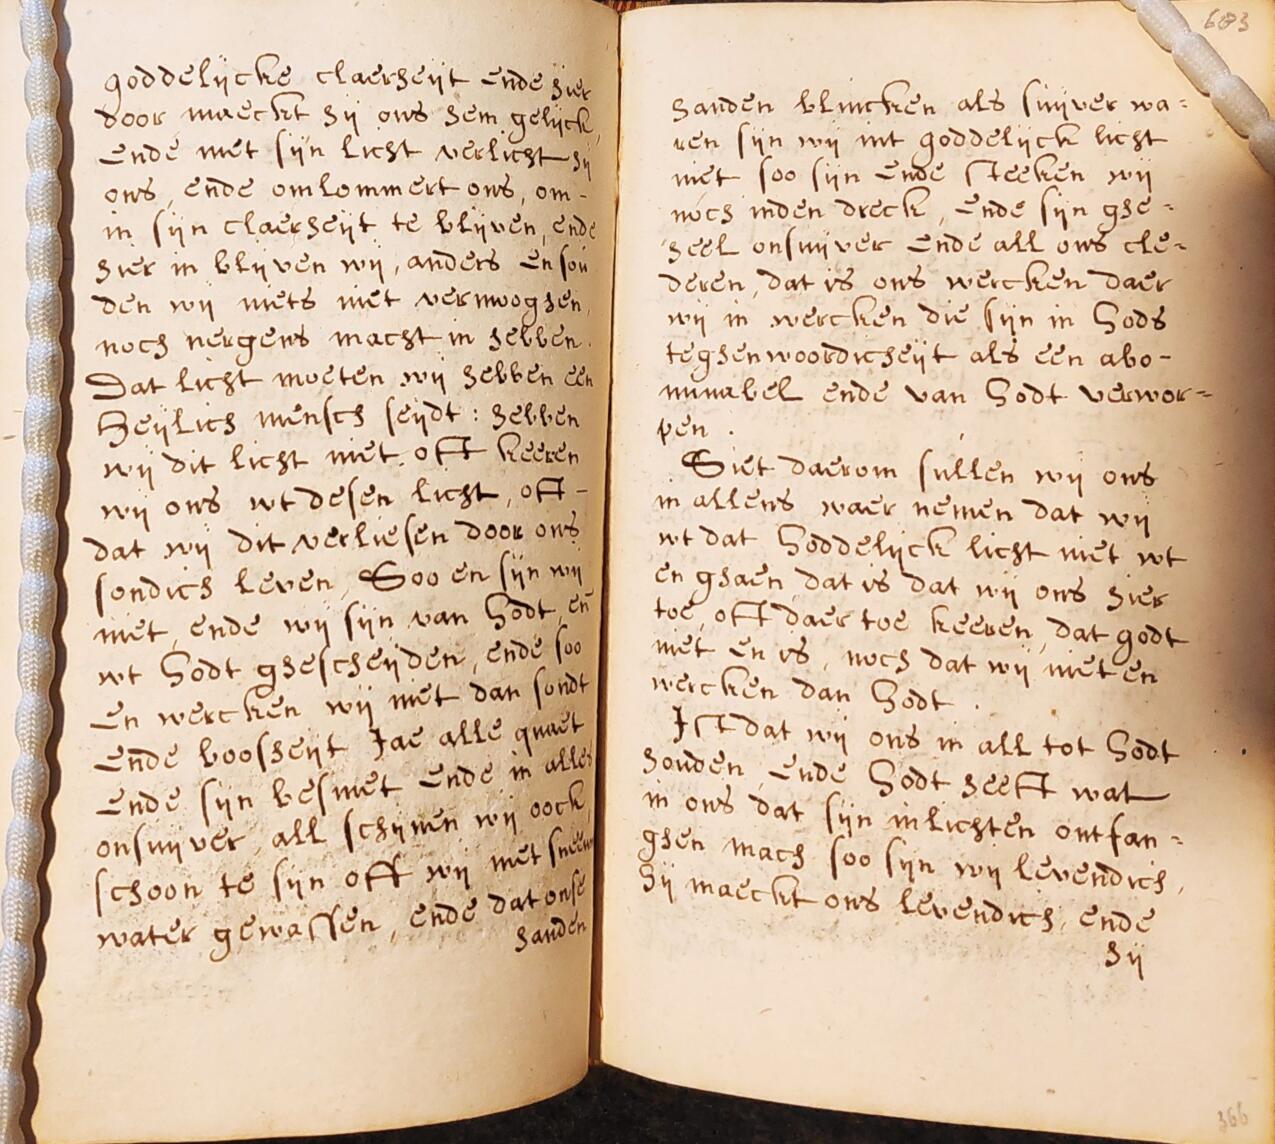 goddelijcke claerheijt ende hier
door maeckt hij ons hem gelijck,
Ende met sijn licht verlicht hij
ons, ende omlommert ons, om-
in sijn claerheijt te blijven, ende
hier in blijven wij, anders en sou
den wij niets niet vermooghen,
noch nergens macht in hebben.
Dat licht moeten wij hebben een
Heijlich mensch seijdt: hebben
wij dit licht niet. oft keeren
wij ons wt desen licht, oft-
dat wij dit verliesen door ons
sondich leven, Soo en sijn wij
niet, ende wij sijn van Godt, en
wt Godt ghescheijden, ende soo
en wercken wij niet dan sondt
Ende boosheijt Jae alle quaet
Ende sijn besmet Ende in alles
onsuijver, all schijnen wij oock,
schoon te sijn off wij met sneeuw
water gewassen, ende dat onse
handen
683
handen blincken als suijver wa=
ren sijn wij int goddelijck licht
niet soo sijn Ende steeken wij
noch inden dreck, Ende sijn ghe=
heel onsuijver Ende all ons cle=
deren, dat is ons wercken daer
wij in wercken die sijn in Gods
teghenwoordicheijt als een abo-
minabel ende van Godt verwor=
pen.
Siet daerom sullen wij ons
in allens waer nemen dat wij
wt dat Goddelijck licht niet wt
en ghaen, dat is dat wij ons hier
toe, oft daer toe keeren, dat godt
niet en is, noch dat wij niet en
wercken dan Godt.
Ist dat wij ons in all tot Godt
houden, Ende Godt heeft wat
in ons dat sijn inlichten ontfan=
ghen mach soo sijn wij levendich,
hij maeckt ons levendich, ende
hij
366